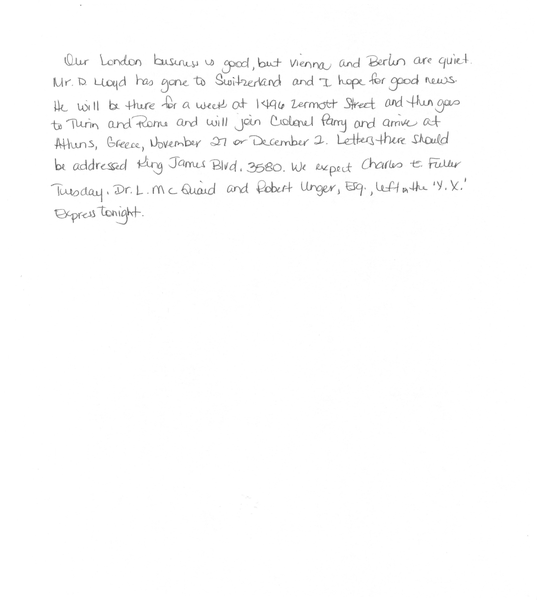 Our London business is good, but Vienna and Berlin are quiet.
Mr. D. Lloyd has gone to Switzerland and I hope for good news.
He will be there for a week at 1496 Zermott Street and then goes
to Turin and Rome and will join Colonel Parry and arrive at
Athens, Greece, November 27 or December 2. Letters there should
be addressed King James Blvd. 3580. We expect Charles E. Fuller
Tuesday. Dr. L. McQuaid and Robert Unger, Esq., left on the 'Y.X.'
Express tonight.